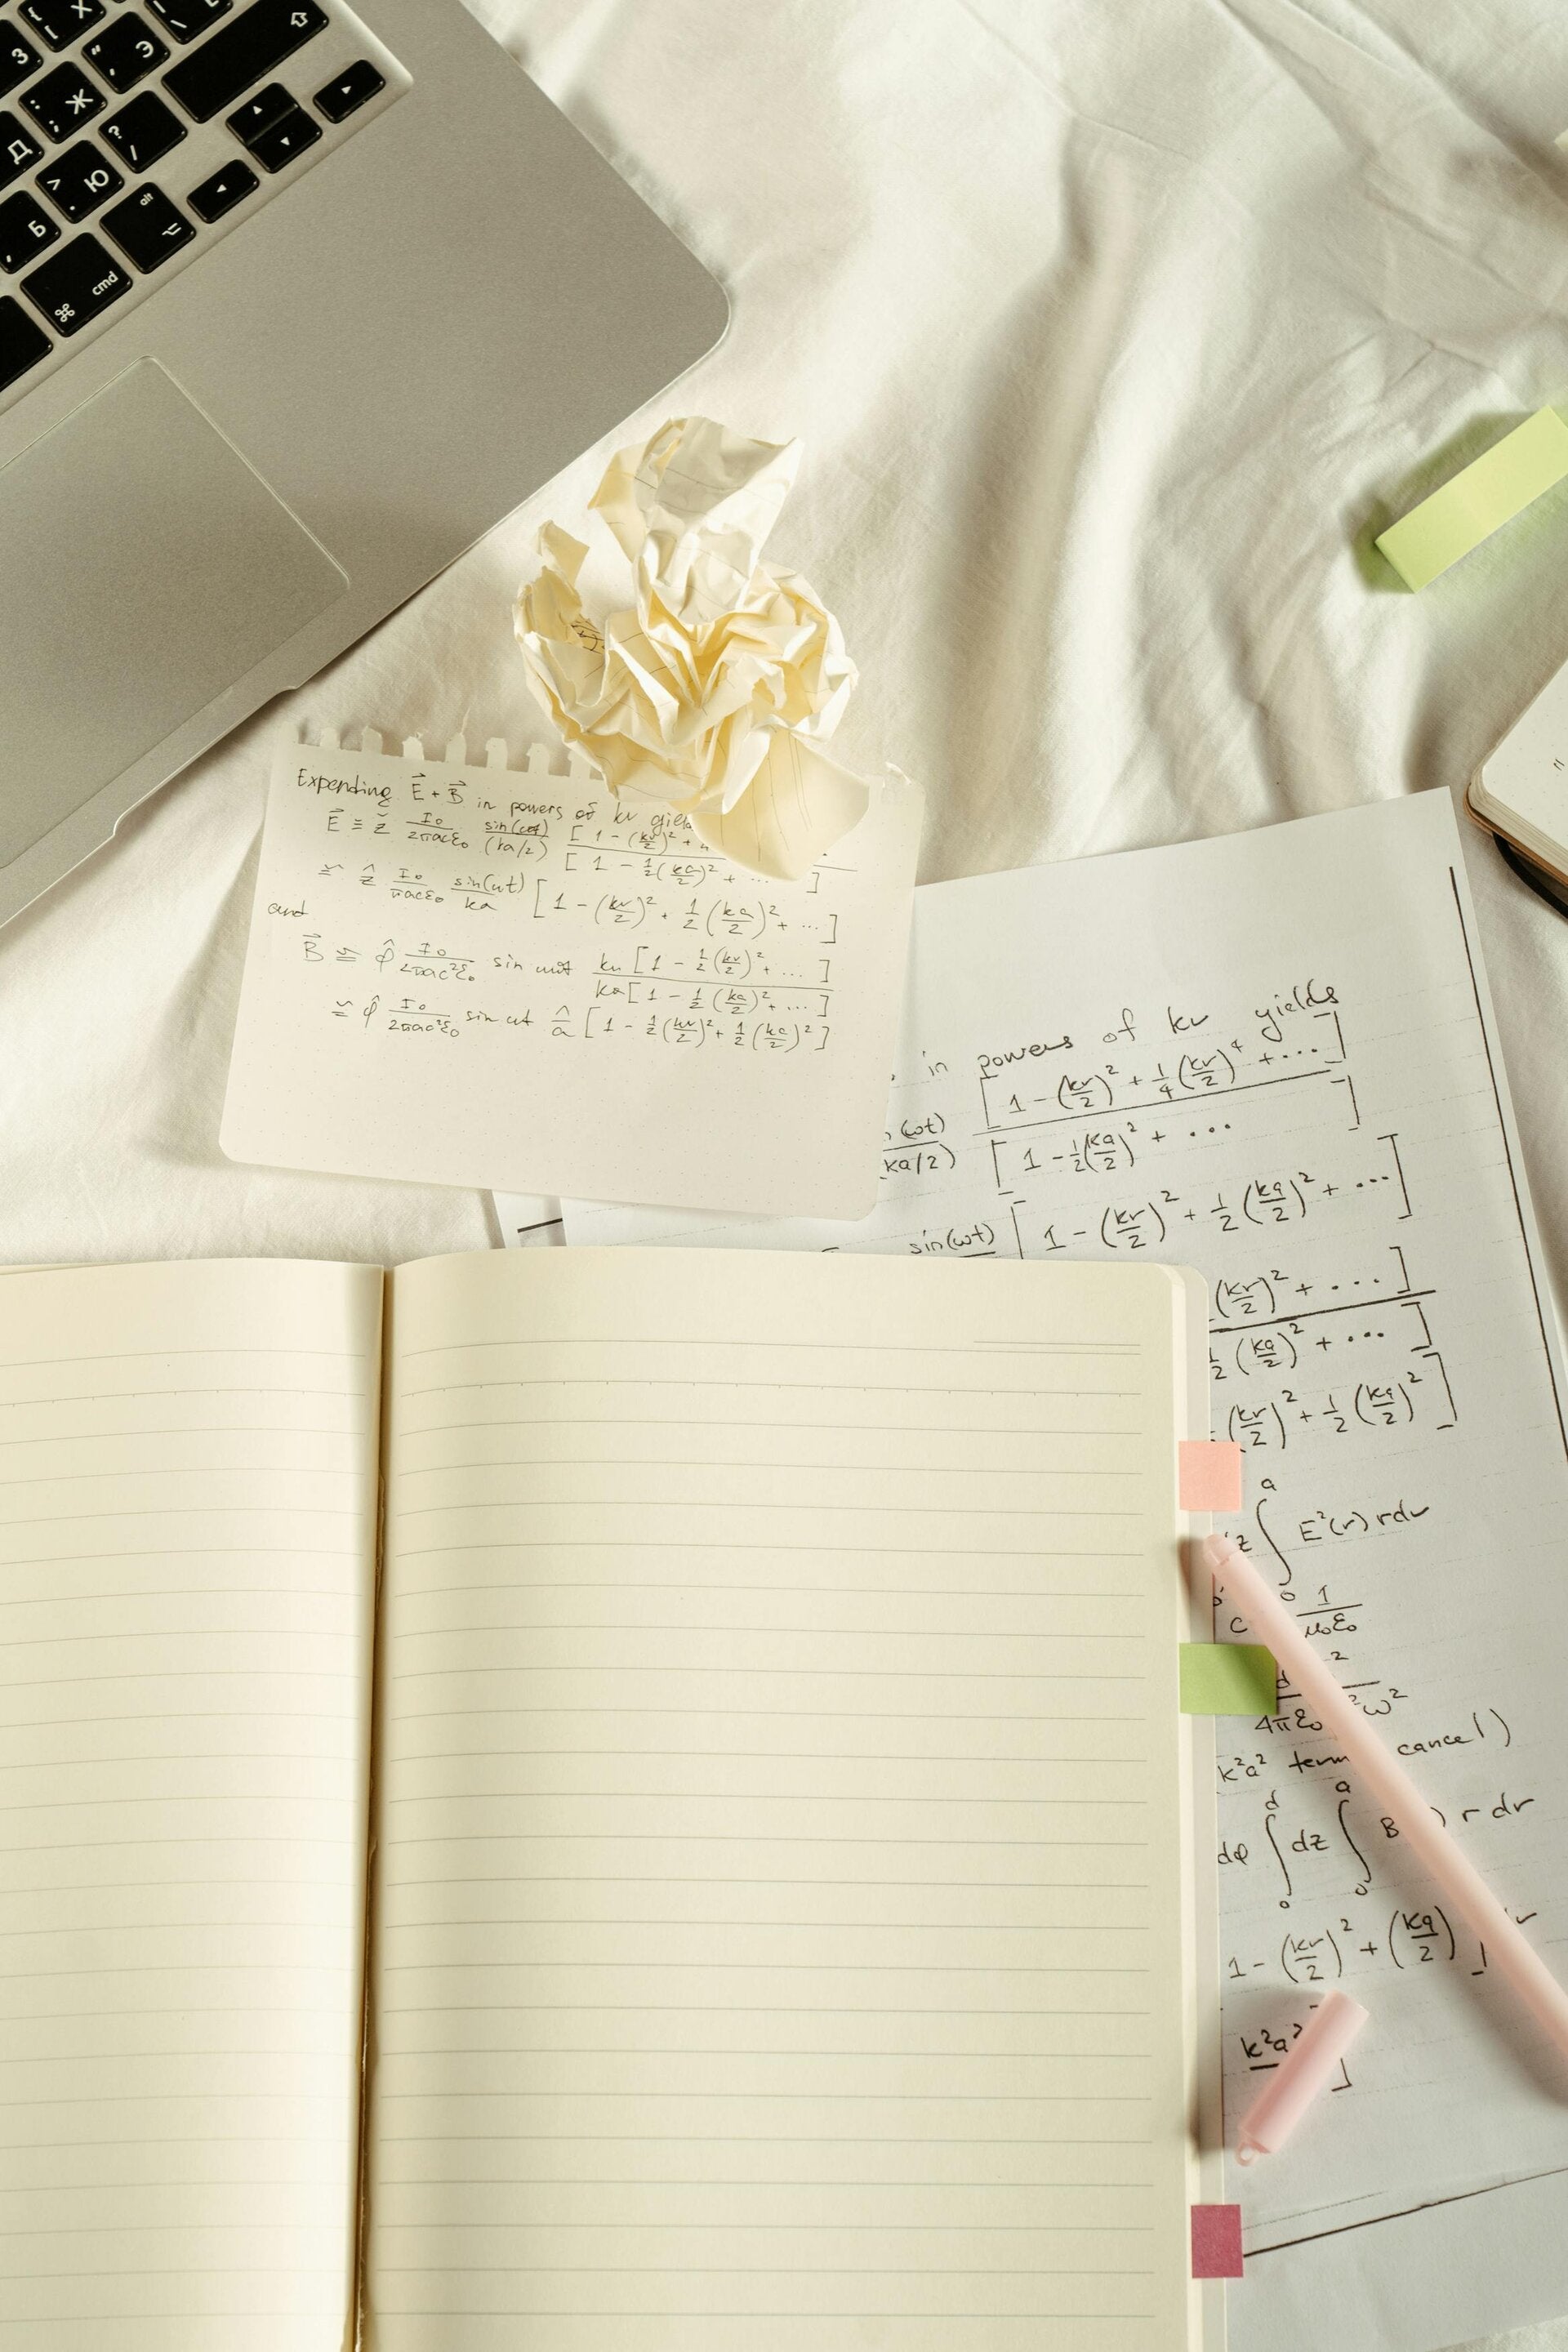 З
Э
Ж
Д
?
/
>
Ю
.
Б
,
alt
⌥
cmd
⌘
Expending E⃗ + B⃗ in powers of kr
E⃗ ≅ ẑ I₀/2πacε₀ sin(ωt)/(ka/2) [1 - (kr/2)² + / [1 - ½(ka/2)² + ... ]
≃ ẑ I₀/πacε₀ sin(ωt)/ka [1 - (kr/2)² + ½(ka/2)² + ... ]
and
B⃗ ≅ φ̂ I₀/2πac²ε₀ sin kr[1 - ½(kr/2)² + ... ] / ka[1 - ½(ka/2)² + ... ]
≃ φ̂ I₀/2πac²ε₀ sin ωt [1 - ½(kr/2)² + ½(ka/2)²]
in powers of kr yields
(ωt)/(ka/2) [1 - (kr/2)² + ¼(kr/2)⁴ + ... ] / [1 - ½(ka/2)² + ... ]
sin(ωt) [1 - (kr/2)² + ½(ka/2)² + ... ]
(kr/2)² + ... ] / ½(ka/2)² + ... ]
(kr/2)² + ½(ka/2)²]
z ∫₀ᵃ E²(r) rdr
c 1/μ₀ε₀
d ² / 4πε₀ ²ω²
k²a² term cancel)
dφ ∫₀ᵈ dz ∫₀ᵃ B ) r dr
1 - (kr/2)² + (ka/2) ]
k²a² ]